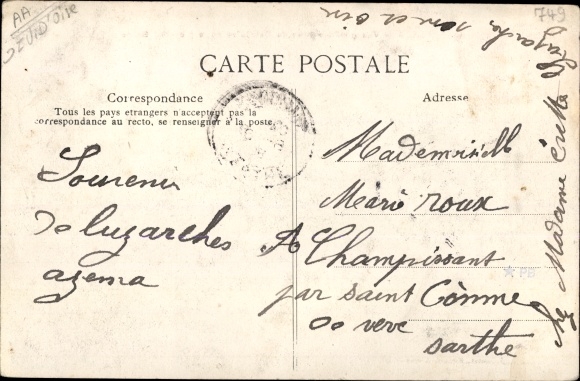 AA
749
CARTE POSTALE
Correspondance
Tous les pays etrangers n'acceptent pas la
correspondance au recto, se renseigner à la poste.
Adresse
Souvenir
De luzarches
azema
Mademoiselle
Marie roux
A Champissant
par saint Cônme
De vere
sarthe
chez Madame
Luzarches
PB